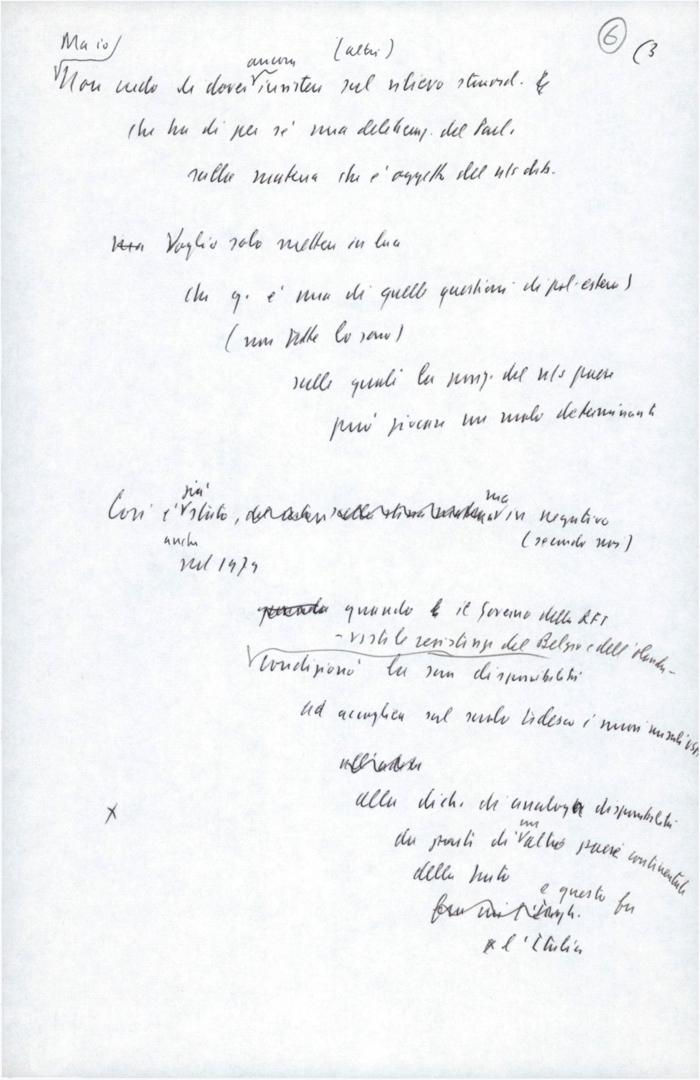 6
(3
Ma io/
ancora (altri)
Non credo di dover insistere sul rilievo straord.
che ha di per sé una deliberaz. del Parl.
sulla materia che è oggetto del ns/ dib.
Voglio solo mettere in luce
che q. è una di quelle questioni di pol. estera)
(non tutte lo sono)
sulle quali la posiz. del ns/ paese
può giocare un ruolo determinante
già ma
Così è stato, in negativo
anche (secondo noi)
nel 1979
quando il Governo della RFT
- viste le resistenze del Belgio e dell'Olanda -
condizionò la sua disponibilità
ad accogliere sul suolo tedesco i nuovi missili
alla dich. di analoga disponibilità
un
da parte di altro paese continentale
della Nato
e questo fu
l'Italia
x